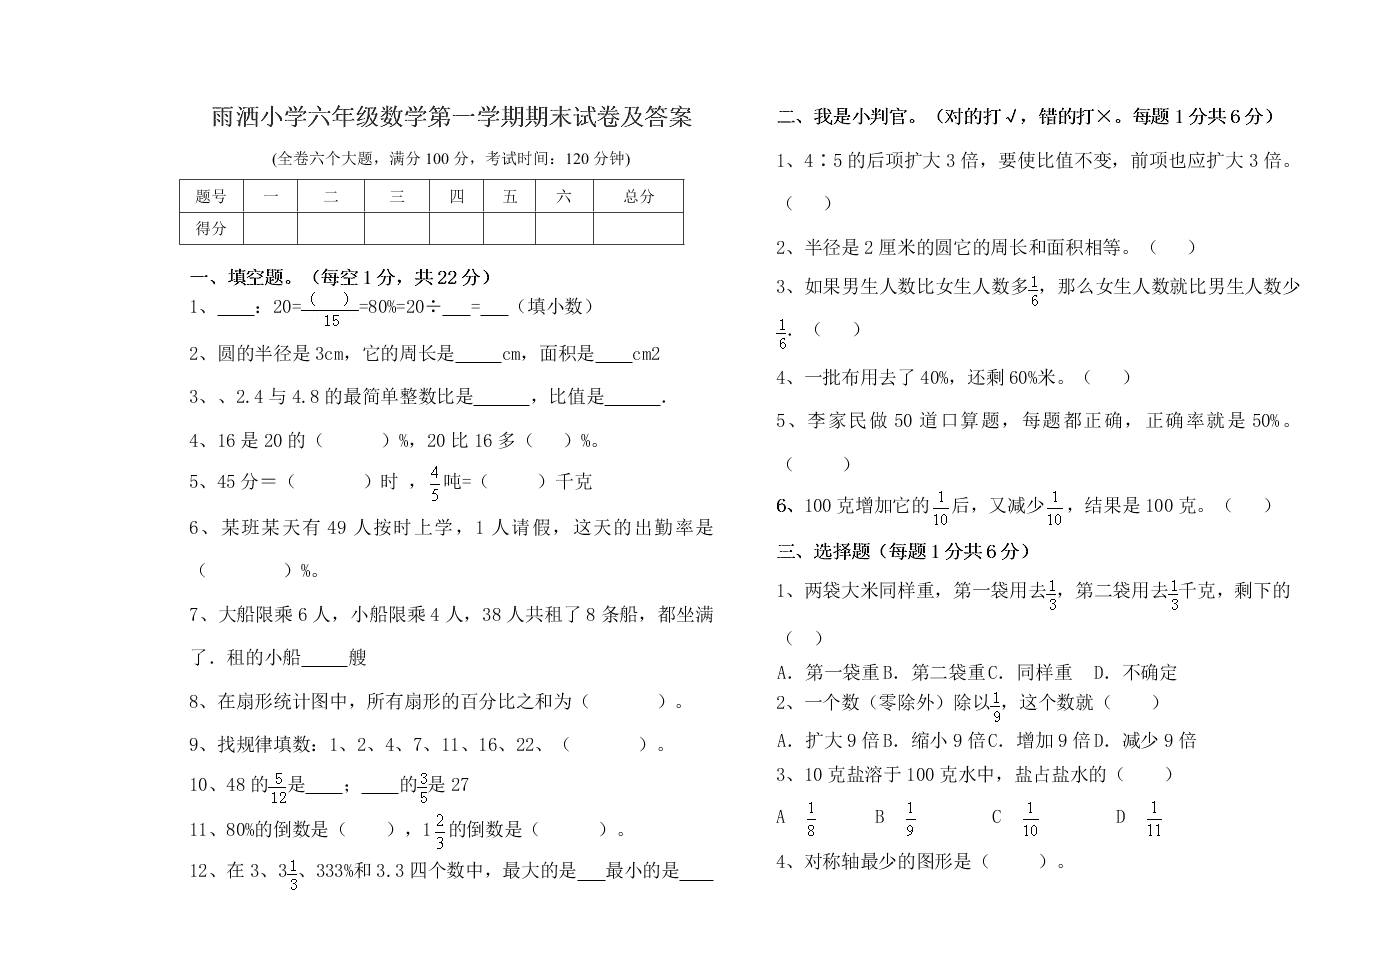 雨洒小学六年级数学第一学期期末试卷及答案
(全卷六个大题，满分100分，考试时间：120分钟)
题号 一 二 三 四 五 六 总分
得分
一、填空题。（每空1分，共22分）
1、____：20=（ ）/15=80%=20÷___=___（填小数）
2、圆的半径是3cm，它的周长是_____cm，面积是____cm2
3、、2.4与4.8的最简单整数比是______，比值是______．
4、16是20的（ ）%，20比16多（ ）%。
5、45分＝（ ）时 ，4/5吨=（ ）千克
6、某班某天有49人按时上学，1人请假，这天的出勤率是
（ ）%。
7、大船限乘6人，小船限乘4人，38人共租了8条船，都坐满
了．租的小船_____艘
8、在扇形统计图中，所有扇形的百分比之和为（ ）。
9、找规律填数：1、2、4、7、11、16、22、（ ）。
10、48的5/12是____；____的3/5是27
11、80%的倒数是（ ）,1 2/3的倒数是（ ）。
12、在3、3 1/3、333%和3.3四个数中，最大的是___最小的是____
二、我是小判官。（对的打√，错的打×。每题1分共6分）
1、4∶5的后项扩大3倍，要使比值不变，前项也应扩大3倍。
（ ）
2、半径是2厘米的圆它的周长和面积相等。（ ）
3、如果男生人数比女生人数多1/6，那么女生人数就比男生人数少
1/6．（ ）
4、一批布用去了40%，还剩60%米。（ ）
5、李家民做50道口算题，每题都正确，正确率就是50%。
（ ）
6、100克增加它的1/10后，又减少1/10，结果是100克。（ ）
三、选择题（每题1分共6分）
1、两袋大米同样重，第一袋用去1/3，第二袋用去1/3千克，剩下的
（ ）
A．第一袋重B．第二袋重C．同样重 D．不确定
2、一个数（零除外）除以1/9，这个数就（ ）
A．扩大9倍B．缩小9倍C．增加9倍D．减少9倍
3、10克盐溶于100克水中，盐占盐水的（ ）
A 1/8 B 1/9 C 1/10 D 1/11
4、对称轴最少的图形是（ ）。